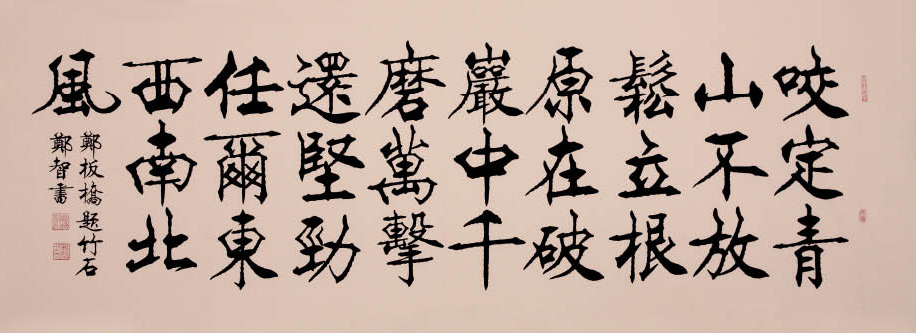 咬定青
山不放
鬆立根
原在破
巖中千
磨萬擊
還堅勁
任爾東
西南北
風
鄭板橋題竹石
鄭智書